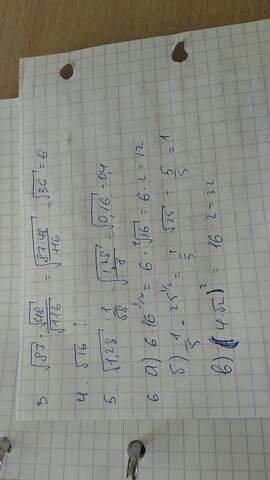 3. √87 · √48 / √116 = √(87·48 / 116) = √36 = 6
4. √16 !
5. √1,28 · 1/√8 = √(1,28 / 8) = √0,16 = 0,4
6 а) 6·16^1/4 = 6 · ⁴√16 = 6 · 2 = 12
б) 1/5 · 25^1/2 = 1/5 √25 = 5/5 = 1
в) (4√2)² = 16 · 2 = 32